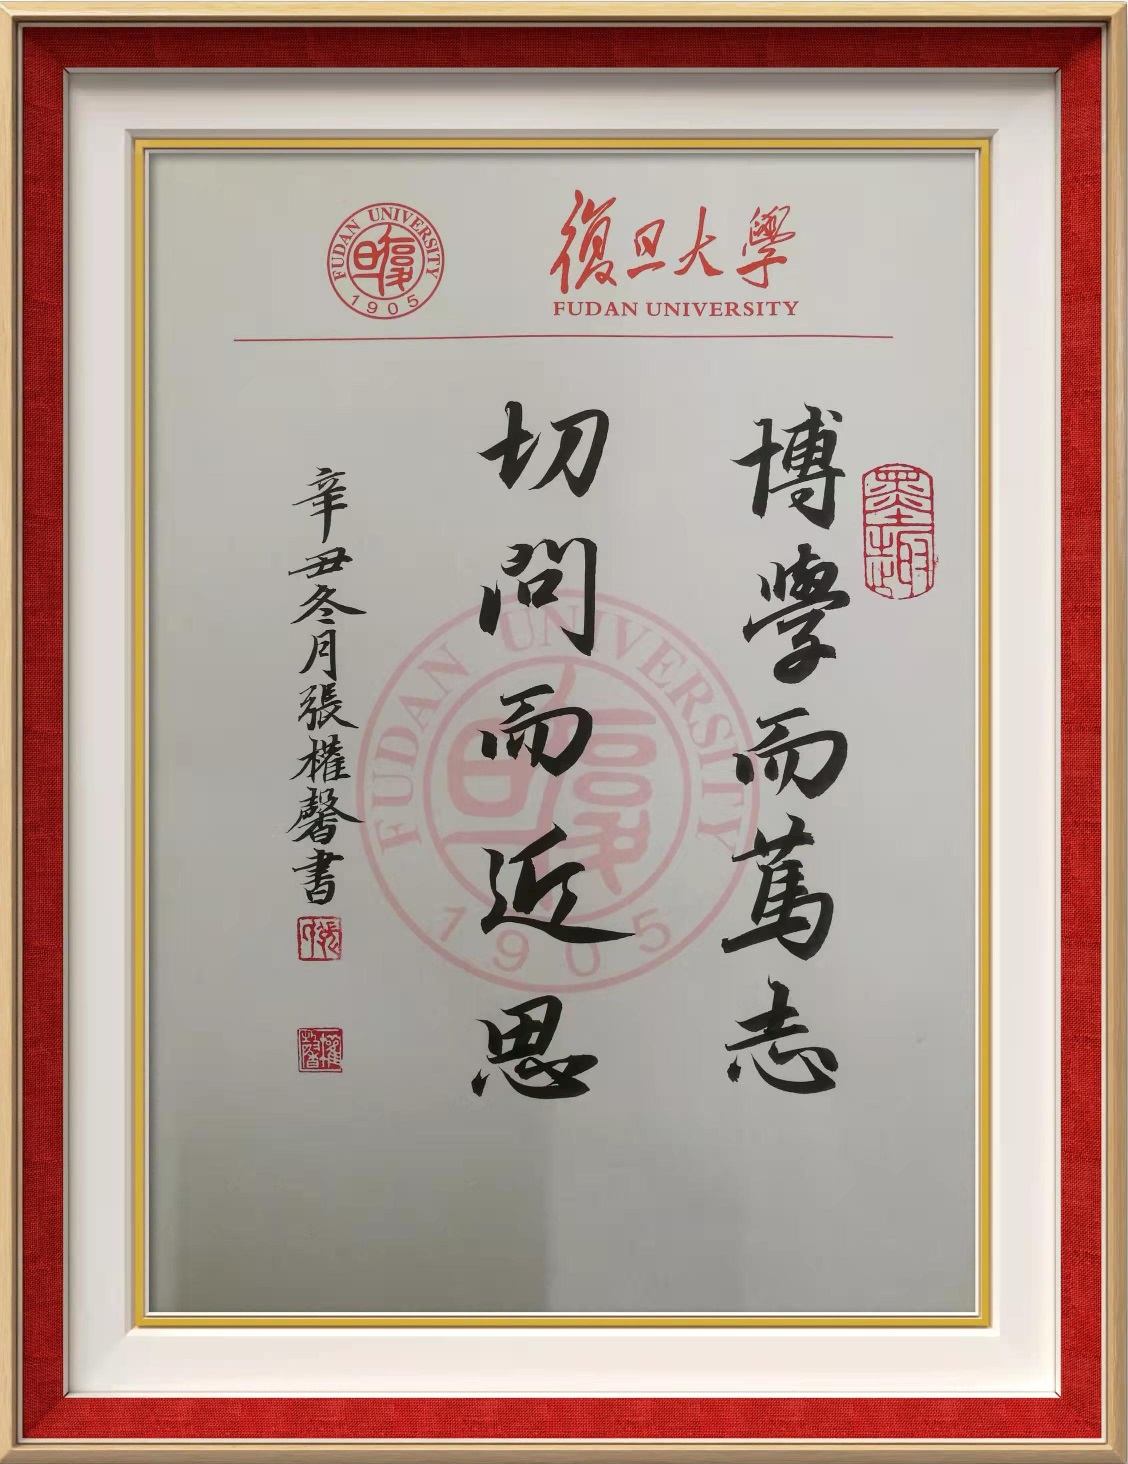 FUDAN UNIVERSITY
1905
復旦大學
FUDAN UNIVERSITY
博學而篤志
切問而近思
辛丑冬月張權馨書
墨趣
FUDAN UNIVERSITY
1905